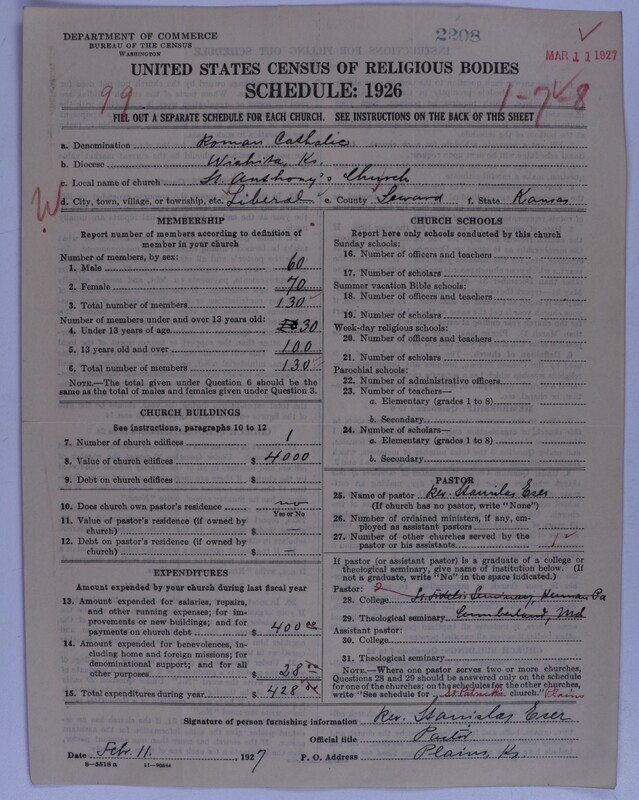 DEPARTMENT OF COMMERCE
BUREAU OF THE CENSUS
WASHINGTON
2208
MAR 11 1927
UNITED STATES CENSUS OF RELIGIOUS BODIES
SCHEDULE: 1926
99
1-7-8
FILL OUT A SEPARATE SCHEDULE FOR EACH CHURCH. SEE INSTRUCTIONS ON THE BACK OF THIS SHEET
a. Denomination Roman Catholic
b. Diocese Wichita, Ks.
c. Local name of church St. Anthony's Church
d. City, town, village, or township, etc. Liberal e. County Seward f. State Kansas
MEMBERSHIP
Report number of members according to definition of member in your church
Number of members, by sex:
1. Male 60
2. Female 70
3. Total number of members 130
Number of members under and over 13 years old:
4. Under 13 years of age 30
5. 13 years old and over 100
6. Total number of members 130
NOTE.—The total given under Question 6 should be the same as the total of males and females given under Question 3.
CHURCH BUILDINGS
See instructions, paragraphs 10 to 12
7. Number of church edifices 1
8. Value of church edifices $ 4000
9. Debt on church edifices $
10. Does church own pastor's residence? no
Yes or No
11. Value of pastor's residence (if owned by church) $ —
12. Debt on pastor's residence (if owned by church) $ —
EXPENDITURES
Amount expended by your church during last fiscal year
13. Amount expended for salaries, repairs, and other running expenses; for improvements or new buildings; and for payments on church debt $ 400 00
14. Amount expended for benevolences, including home and foreign missions; for denominational support; and for all other purposes $ 28 00
15. Total expenditures during year $ 428 00
CHURCH SCHOOLS
Report here only schools conducted by this church
Sunday schools:
16. Number of officers and teachers
17. Number of scholars
Summer vacation Bible schools:
18. Number of officers and teachers
19. Number of scholars
Week-day religious schools:
20. Number of officers and teachers
21. Number of scholars
Parochial schools:
22. Number of administrative officers
23. Number of teachers—
a. Elementary (grades 1 to 8)
b. Secondary
24. Number of scholars—
a. Elementary (grades 1 to 8)
b. Secondary
PASTOR
25. Name of pastor Rev. Stanislas Eser
(If church has no pastor, write "None")
26. Number of ordained ministers, if any, employed as assistant pastors
27. Number of other churches served by the pastor or his assistants 1
If pastor (or assistant pastor) is a graduate of a college or theological seminary, give name of institution below. (If not a graduate, write "No" in the space indicated.)
Pastor:
28. College St. Fidelis Seminary, Herman Pa
29. Theological seminary Cumberland, Md
Assistant pastor:
30. College
31. Theological seminary
NOTE.—Where one pastor serves two or more churches, Questions 28 and 29 should be answered only on the schedule for one of the churches; on the schedules for the other churches, write "See schedule for St Patricks church." Plains
Signature of person furnishing information Rev. Stanislas Eser
Official title Pastor
Date Feb. 11, 1927 P. O. Address Plains, Ks.
8—5519 a